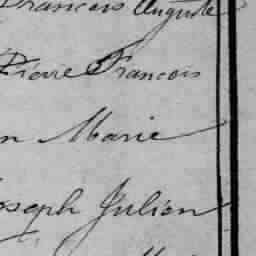 François Auguste
Pierre François
n Marie
oseph Julien